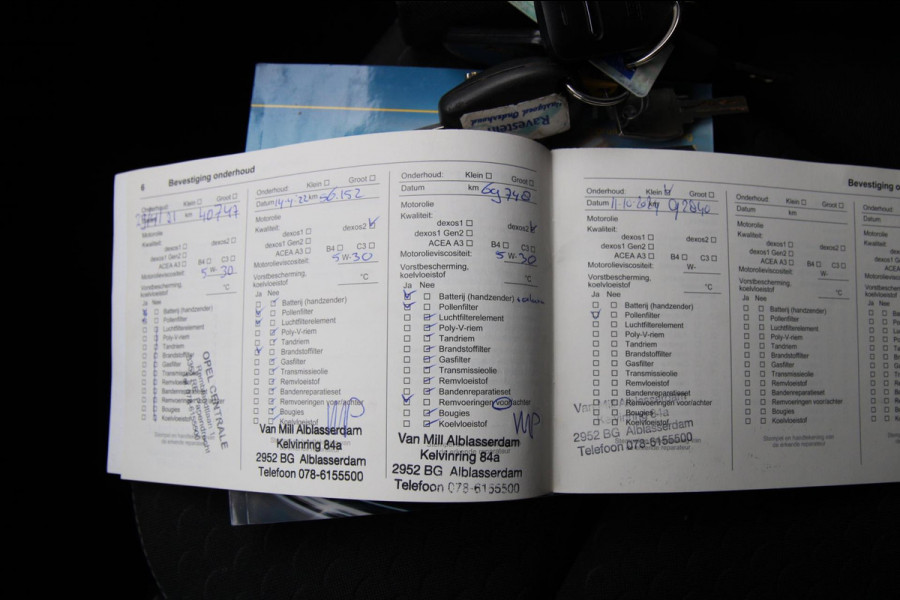 6 Bevestiging onderhoud
Onderhoud: Klein Groot
21 km 40747
Motorolie
Kwaliteit:
dexos1 dexos2
dexos1 Gen2
ACEA A3 B4 C3
Motorolieviscositeit: 5 W- 30
Vorstbescherming,
koelvloeistof °C
Ja Nee
Batterij (handzender)
Pollenfilter
Luchtfilterelement
Poly-V-riem
Tandriem
Brandstoffilter
Gasfilter
Transmissieolie
Remvloeistof
Bandenreparatieset
Remvoeringen voor/achter
Bougies
Koelvloeistof
OPEL CENTRALE
Onderhoud: Klein Groot
Datum 14-4-22 km 56.152
Motorolie
Kwaliteit:
dexos1 dexos2
dexos1 Gen2
ACEA A3 B4 C3
Motorolieviscositeit: 5 W- 30
Vorstbescherming,
koelvloeistof °C
Ja Nee
Batterij (handzender)
Pollenfilter
Luchtfilterelement
Poly-V-riem
Tandriem
Brandstoffilter
Gasfilter
Transmissieolie
Remvloeistof
Bandenreparatieset
Remvoeringen voor/achter
Bougies
Koelvloeistof
Van Mill Alblasserdam
Kelvinring 84a
2952 BG Alblasserdam
Telefoon 078-6155500
Onderhoud: Klein Groot
Datum km 69740
Motorolie
Kwaliteit:
dexos1 dexos2
dexos1 Gen2
ACEA A3 B4 C3
Motorolieviscositeit: 5 W- 30
Vorstbescherming,
koelvloeistof °C
Ja Nee
Batterij (handzender)
Pollenfilter
Luchtfilterelement
Poly-V-riem
Tandriem
Brandstoffilter
Gasfilter
Transmissieolie
Remvloeistof
Bandenreparatieset
Remvoeringen voor/achter
Bougies
Koelvloeistof
Van Mill Alblasserdam
Kelvinring 84a
2952 BG Alblasserdam
Telefoon 078-6155500
Ravesteijn
Onderhoud
Bevestiging
Onderhoud: Klein Groot
Datum 11-10
Motorolie
Kwaliteit:
dexos1 dexos2
dexos1 Gen2
ACEA A3 B4 C3
Motorolieviscositeit: W-
Vorstbescherming,
koelvloeistof °C
Ja Nee
Batterij (handzender)
Pollenfilter
Luchtfilterelement
Poly-V-riem
Tandriem
Brandstoffilter
Gasfilter
Transmissieolie
Remvloeistof
Bandenreparatieset
Remvoeringen voor/achter
Bougies
Koelvloeistof
2952 BG Alblasserdam
Telefoon 078-6155500
Onderhoud: Klein Groot
Datum km
Motorolie
Kwaliteit:
dexos1 dexos2
dexos1 Gen2
ACEA A3 B4 C3
Motorolieviscositeit: W-
Vorstbescherming,
koelvloeistof °C
Ja Nee
Batterij (handzender)
Pollenfilter
Luchtfilterelement
Poly-V-riem
Tandriem
Brandstoffilter
Gasfilter
Transmissieolie
Remvloeistof
Bandenreparatieset
Remvoeringen voor/achter
Bougies
Koelvloeistof
Stempel en handtekening van
de erkende reparateur
Onderhoud:
Datum
Motorolie
Kwaliteit:
Motorolieviscositeit
Vorstbescherming,
koelvloeistof
Ja Nee